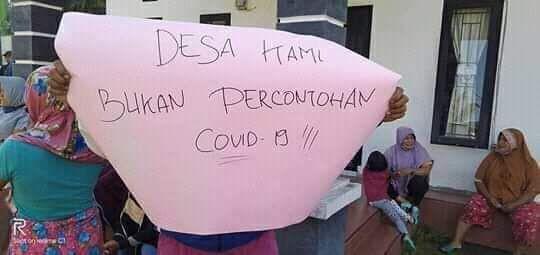 DESA KAMI
BUKAN PERCONTOHAN
COVID-19 !!!
R
Shot on realme C1